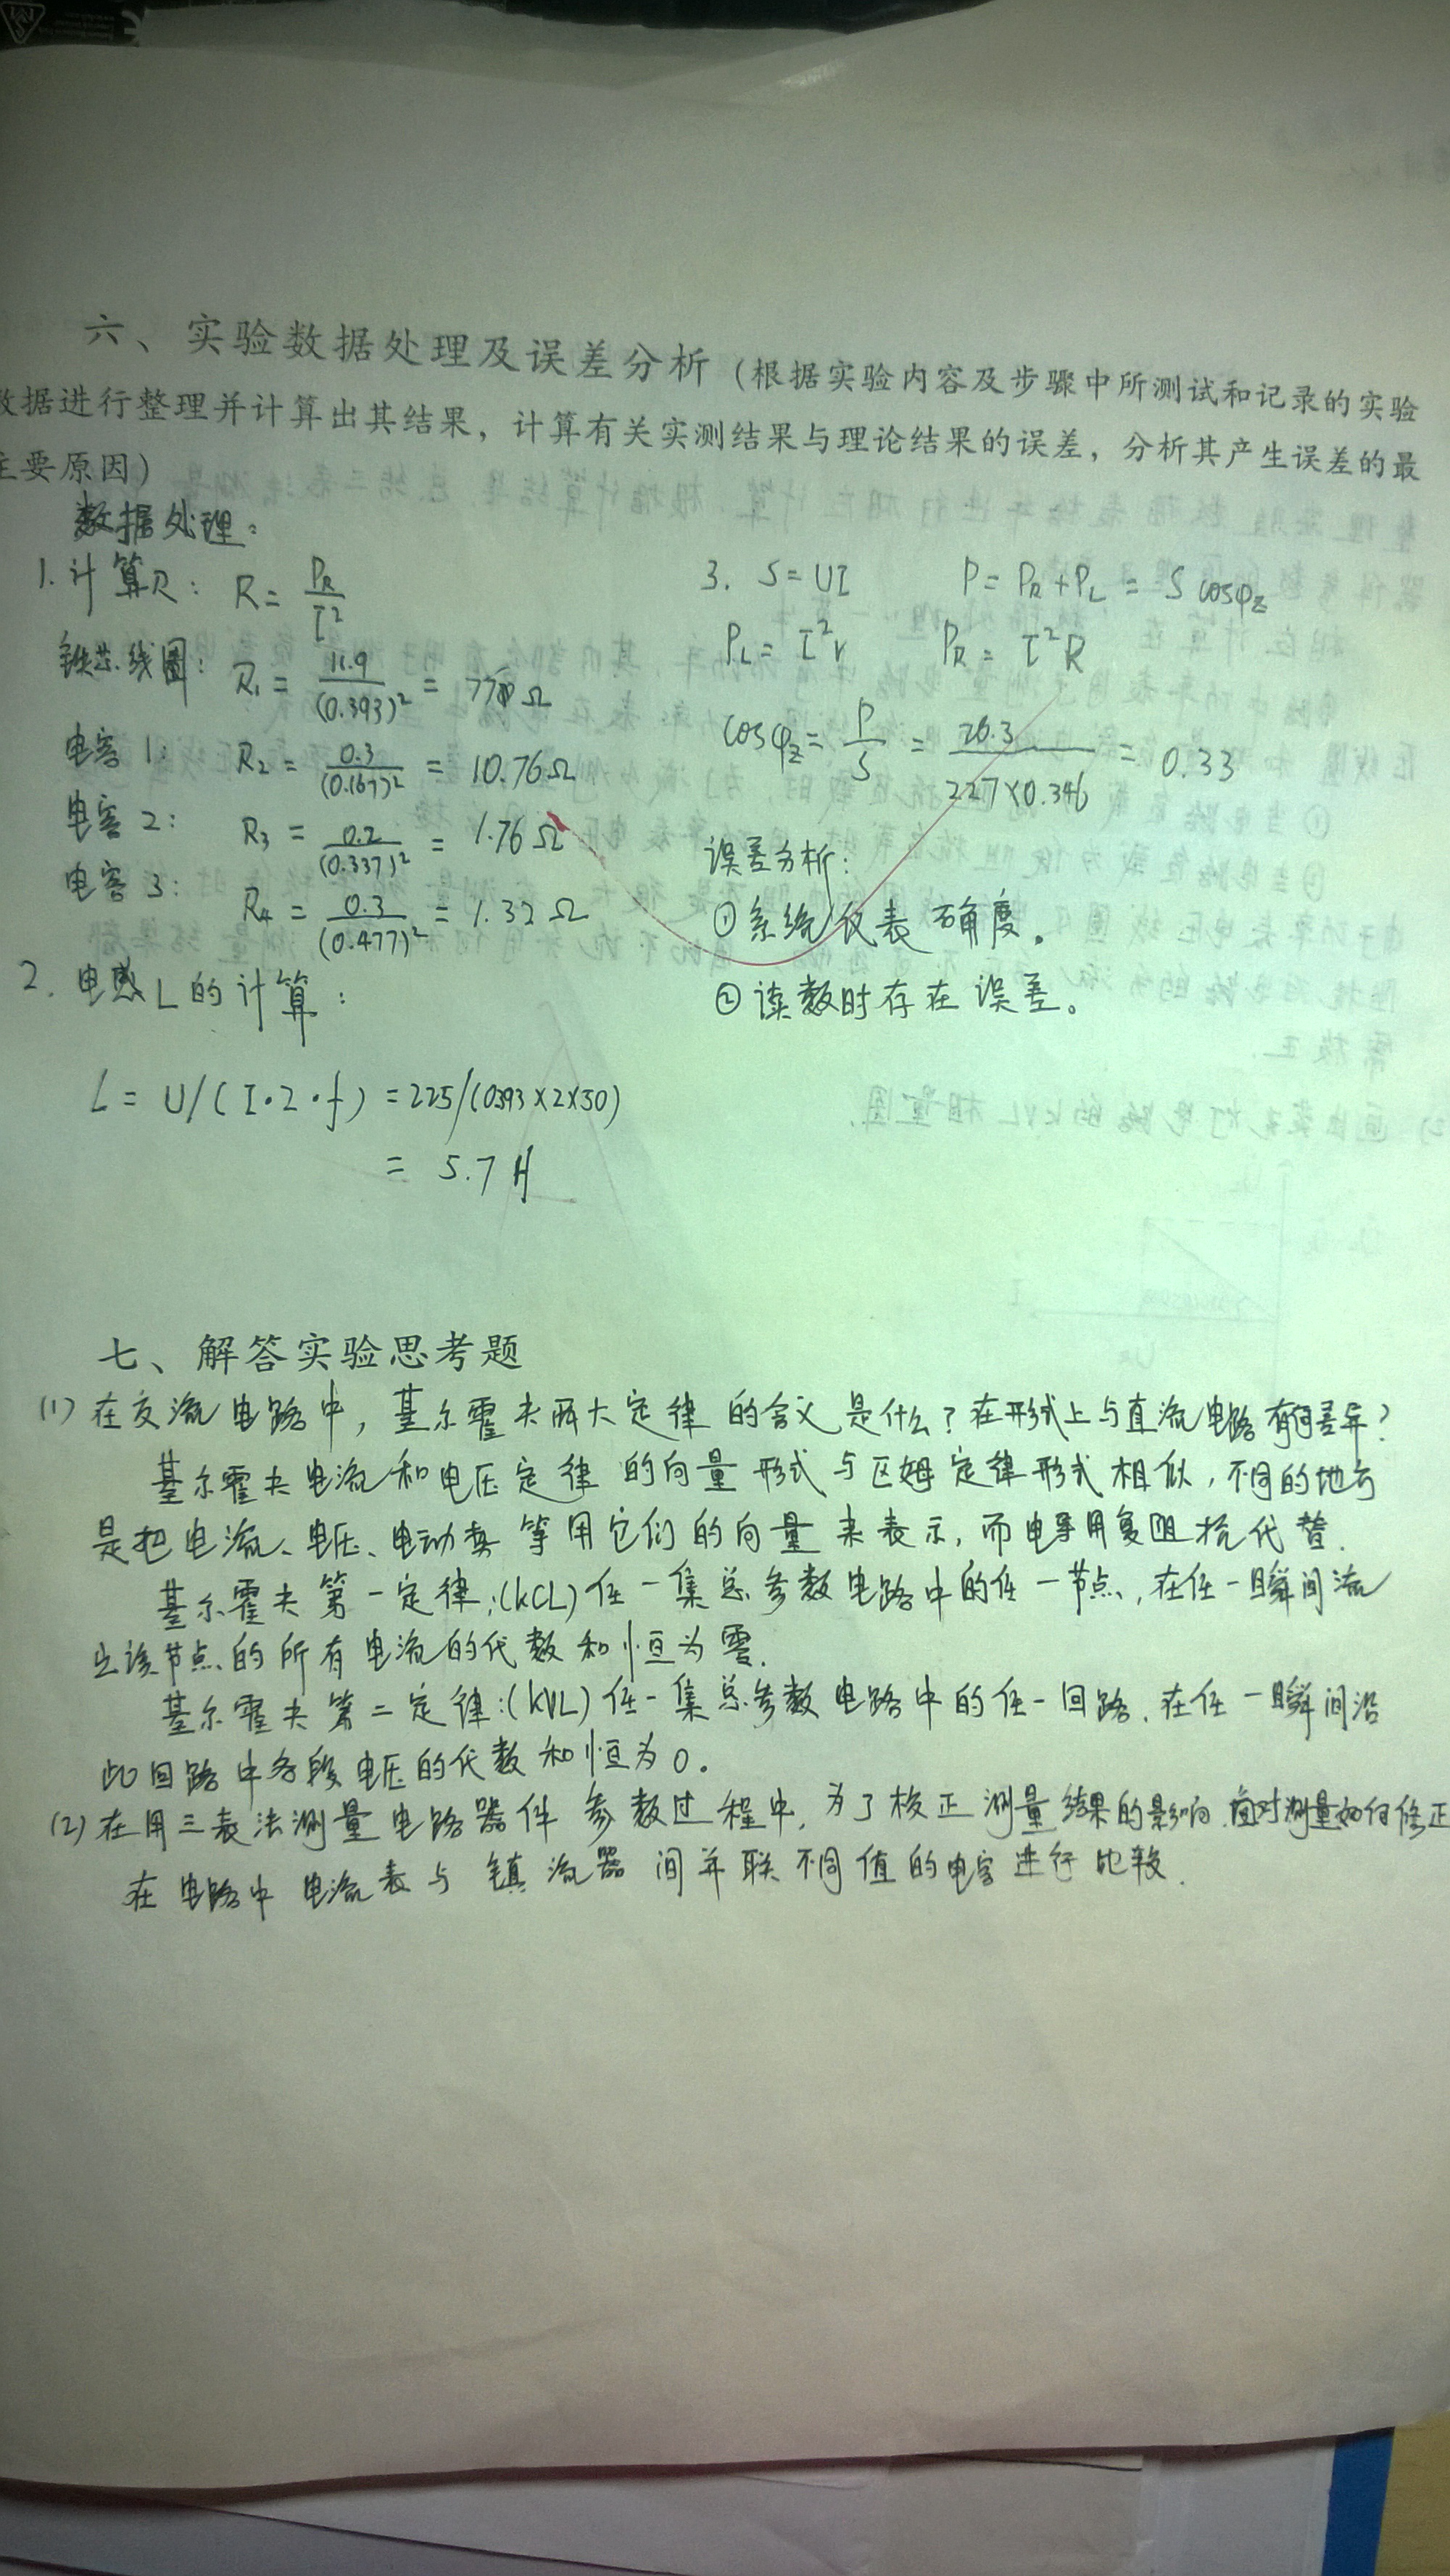 六、实验数据处理及误差分析（根据实验内容及步骤中所测试和记录的实验
数据进行整理并计算出其结果，计算有关实测结果与理论结果的误差，分析其产生误差的最
主要原因）
数据处理：
1. 计算R： R = P_R / I²
铁芯线圈： R₁ = 11.9 / (0.393)² = 77 Ω
电容1： R₂ = 0.3 / (0.167)² = 10.76Ω
电容2： R₃ = 0.2 / (0.337)² = 1.76Ω
电容3： R₄ = 0.3 / (0.477)² = 1.32Ω
2. 电感L的计算：
L = U/(I·2·f) = 225/(0393×2×50)
= 5.7H
3. S = UI P = P_R + P_L = S cosφ_Z
P_L = I²r P_R = I²R
cosφ_Z = P/S = 26.3 / 227×0.346 = 0.33
误差分析：
① 系统仪表确度。
② 读数时存在误差。
七、解答实验思考题
(1) 在交流电路中，基尔霍夫两大定律的含义是什么？在形式上与直流电路有何差异？
基尔霍夫电流和电压定律的向量形式与区姆定律形式相似，不同的地方
是把电流、电压、电动势等用它们的向量来表示，而电导用复阻抗代替.
基尔霍夫第一定律：(KCL) 任一集总参数电路中的任一节点，在任一瞬间流
出该节点的所有电流的代数和恒为零.
基尔霍夫第二定律：(KVL) 任一集总参数电路中的任一回路，在任一瞬间沿
此回路中各段电压的代数和恒为0。
(2) 在用三表法测量电路器件参数过程中，为了校正测量结果的影响，面对测量如何修正
在电路中电流表与镇流器间并联不同值的电容进行比较.